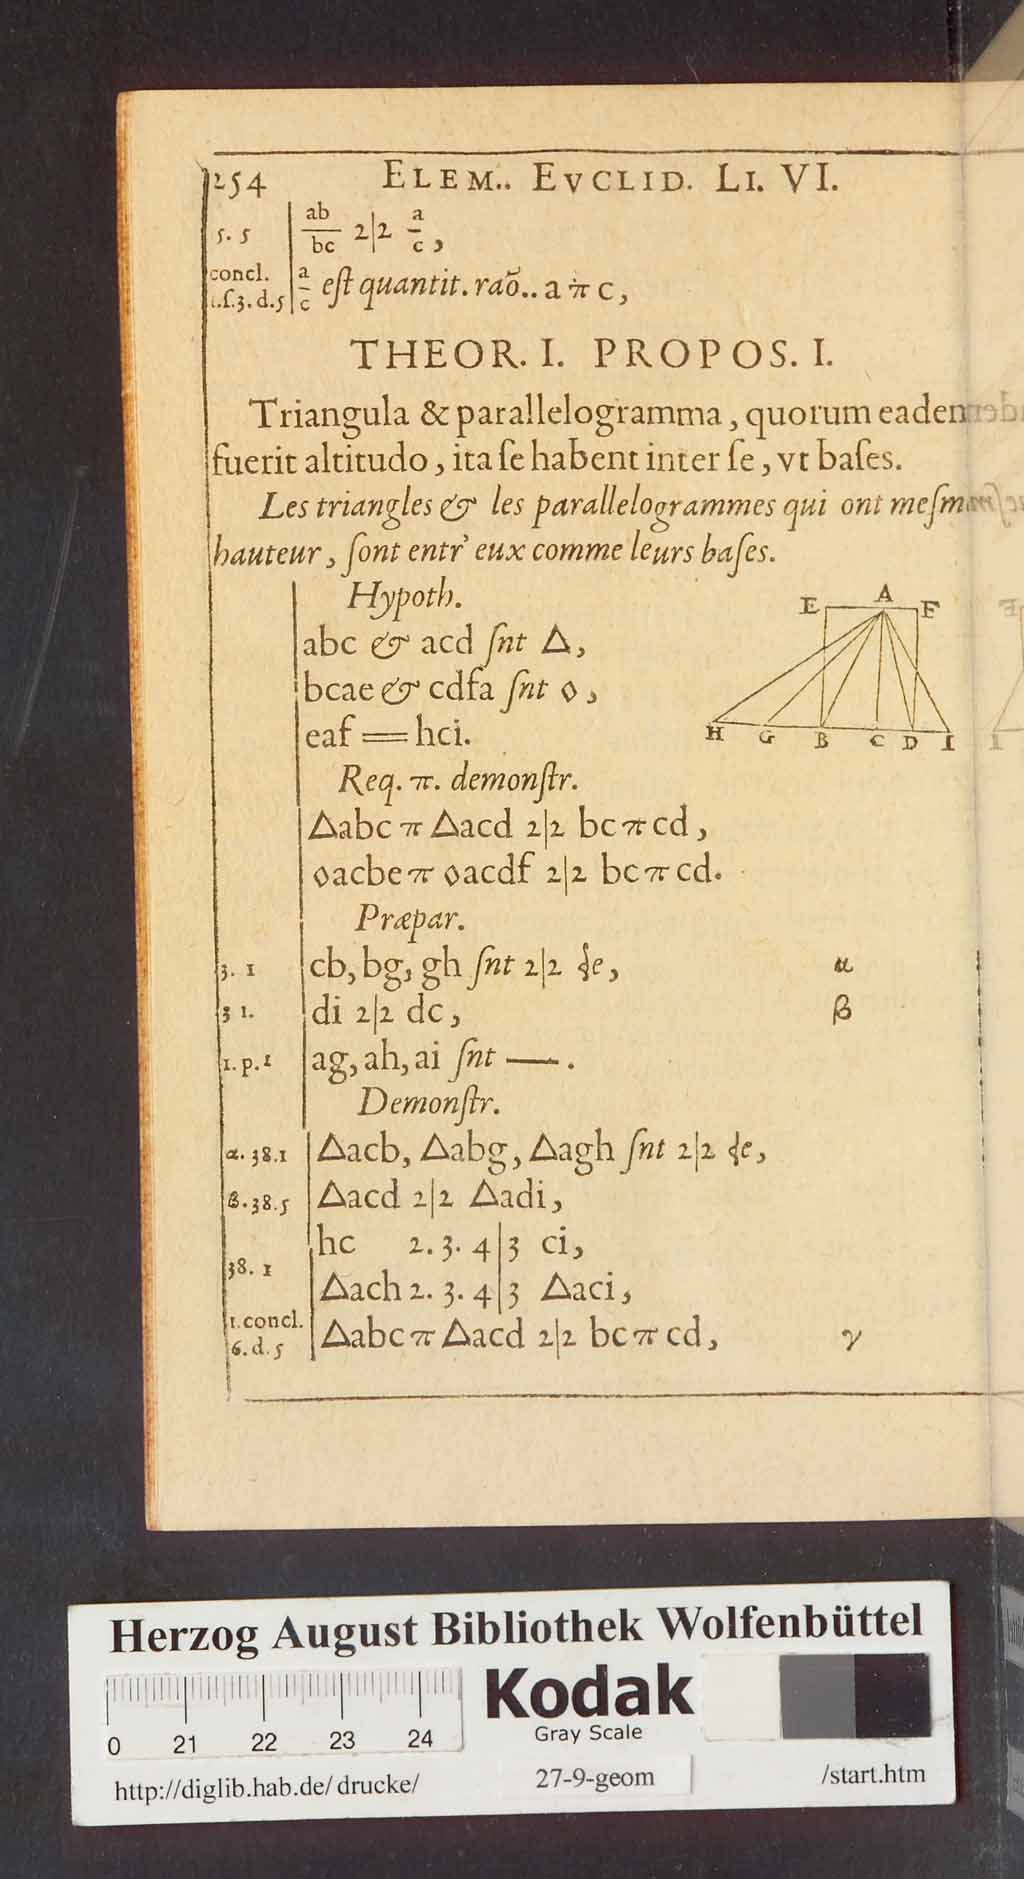 254 ELEM.. EVCLID. LI. VI.
5. 5 ab/bc 2|2 a/c,
concl. 1.f.3.d.5 a/c eſt quantit. raõ.. a π c,
THEOR. I. PROPOS. I.
Triangula & parallelogramma, quorum eadem
fuerit altitudo, ita ſe habent inter ſe, vt baſes.
Les triangles & les parallelogrammes qui ont meſm
hauteur, ſont entr' eux comme leurs baſes.
Hypoth.
abc & acd ſnt Δ,
bcae & cdfa ſnt ◊,
eaf == hci.
E A F
H G B C D I
Req. π. demonſtr.
Δabc π Δacd 2|2 bc π cd,
◊acbe π ◊acdf 2|2 bc π cd.
Præpar.
3. 1 cb, bg, gh ſnt 2|2 de, α
3 1. di 2|2 dc, β
1. p. 1 ag, ah, ai ſnt —.
Demonſtr.
α. 38.1 Δacb, Δabg, Δagh ſnt 2|2 de,
β. 38.5 Δacd 2|2 Δadi,
hc 2. 3. 4|3 ci,
38. 1
Δach 2. 3. 4|3 Δaci,
1. concl. 6. d. 5 Δabc π Δacd 2|2 bc π cd, γ
Herzog August Bibliothek Wolfenbüttel
Kodak
Gray Scale
0 21 22 23 24
http://diglib.hab.de/drucke/ 27-9-geom /start.htm